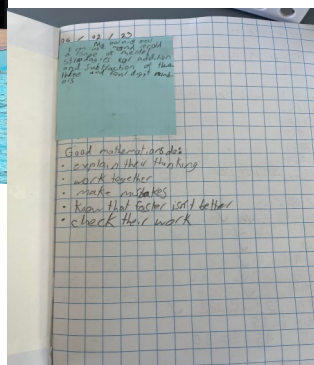 02 / 23
and record
a range of mental
strategies for addition
and subtraction of two
three and four digit numb
ers
Good mathematicians:
• explain their thinking
• work together
• make mistakes
• know that faster isn't better
• check their work